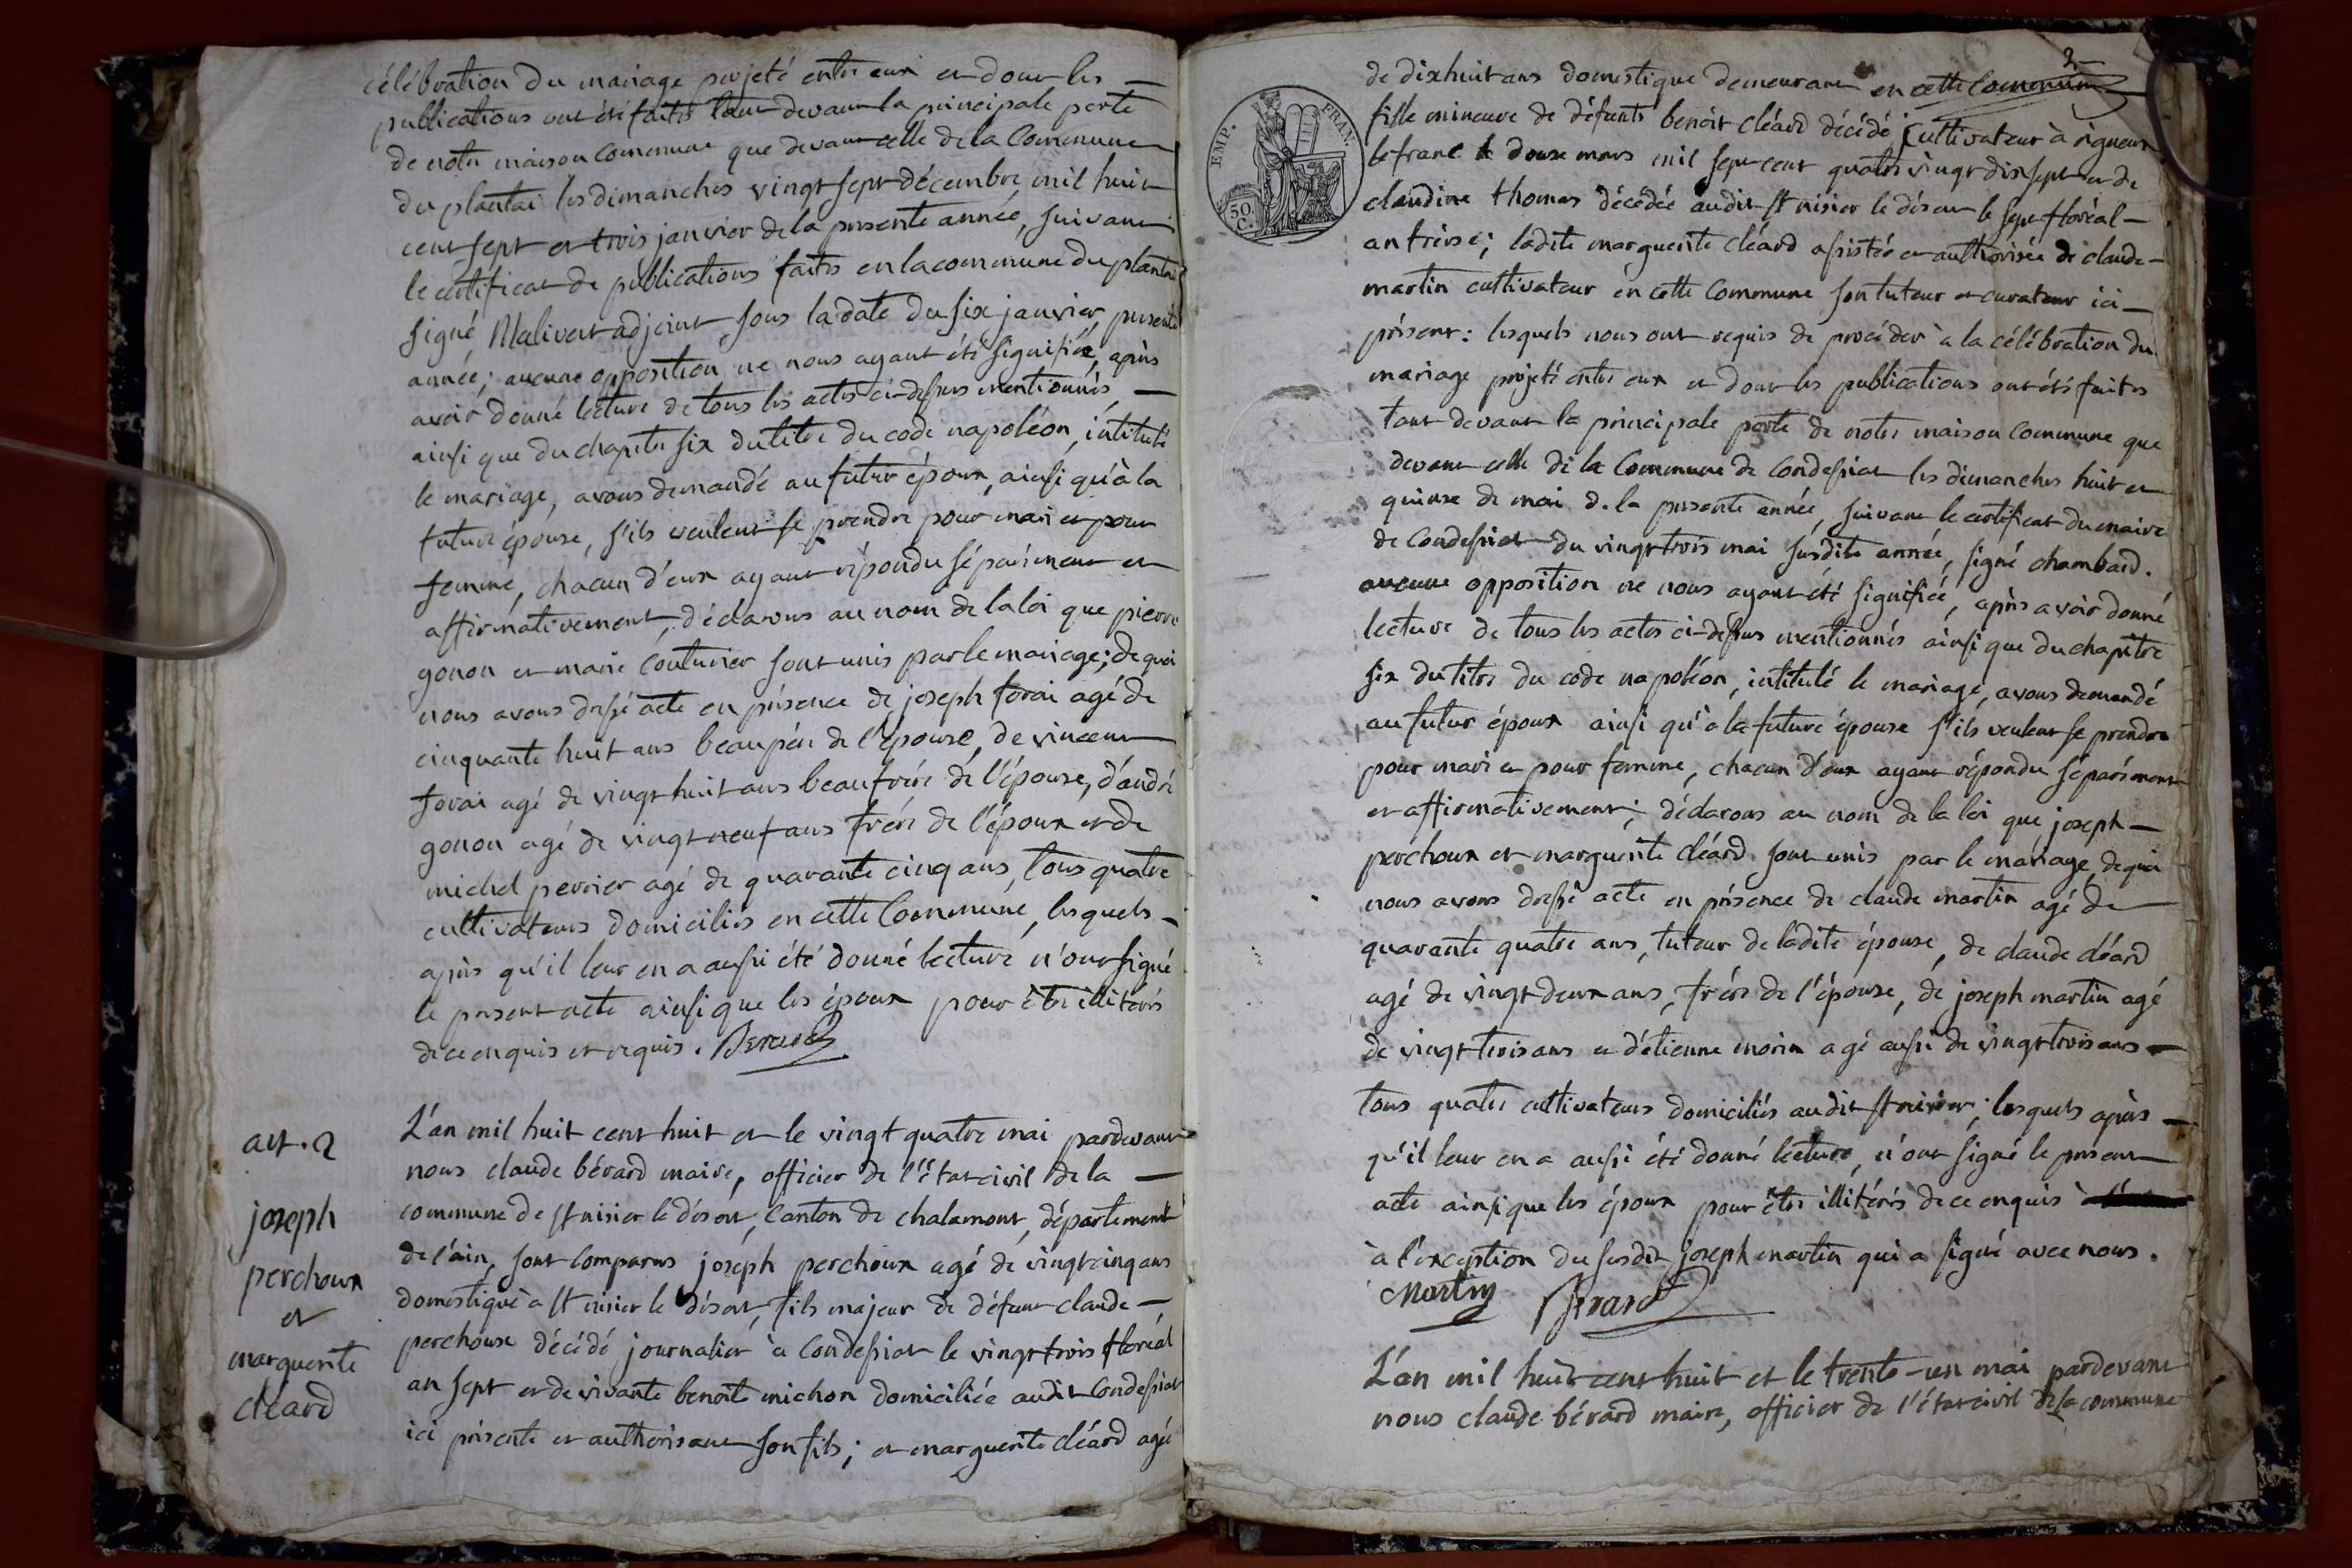 célébration du mariage projeté entre eux et dont les —
publications ont été faites tant devant la principale porte
de notre maison commune que devant celle de la Commune
du plantai les dimanches vingt sept décembre mil huit
cent sept et trois janvier de la presente année, suivant
le certificat de publications faites en la commune du plantai
signé Malivert adjoint sous la date du six janvier, presente
année; aucune opposition ne nous ayant été signifiée, après
avoir donné lecture de tous les actes ci-dessus mentionnés, —
ainsi que du chapitre six du titre du code napoléon, intitulé
le mariage, avons demandé au futur époux, ainsi qu'à la
future épouse, s'ils veulent se prendre pour mari et pour
femme, chacun d'eux ayant répondu séparément et
affirmativement, déclarons au nom de la loi que pierre
gonon et marie Couturier sont unis par le mariage; de quoi
nous avons dressé acte en présence de joseph forai agé de
cinquante huit ans beaupère de l'épouse, de vincent
forai agé de vingt huit ans beaufrère de l'épouse, d'andré
gonon agé de vingt neuf ans frère de l'époux et de
michel perrier agé de quarante cinq ans, tous quatre
cultivateurs domiciliés en cette Commune, lesquels —
après qu'il leur en a aussi été donné lecture n'ont signé
le present acte ainsi que les époux pour être illitérés
de ce enquis et requis. Berard
act. 2
joseph
perchoux
et
marguerite
cléard
L'an mil huit cent huit et le vingt quatre mai pardevant
nous claude bérard maire, officier de l'état civil de la —
commune de st nisier le désert, Canton de chalamont, département
de l'ain, sont Comparus joseph perchoux agé de vingt cinq ans
domestique à st nisier le désert, fils majeur de défunt claude —
perchoux décédé journalier à Condessiat le vingt trois floréal
an sept et de vivante benoite michon domiciliée audit Condessiat
ici présente et authorisant son fils; et marguerite cléard agée
2
EMP. FRAN.
50
C.
de dixhuit ans domestique demeurant en cette Commune
fille mineure de défunts benoit cléard décédé cultivateur à rigneux
le franc le douze mars mil sept cent quatre vingt dix sept et de
claudine thomas décédée audit st nisier le désert le sept floréal —
an treize; ladite marguerite cléard assistée et authorisée de claude —
martin cultivateur en cette Commune son tuteur et curateur ici —
présent: lesquels nous ont requis de procéder à la célébration du
mariage projeté entre eux et dont les publications ont été faites
tant devant la principale porte de notre maison commune que
devant celle de la Commune de Condessiat les dimanches huit et
quinze de mai de la presente année, suivant le certificat du maire
de Condessiat du vingt trois mai susdite année, signé chambard.
aucune opposition ne nous ayant été signifiée, après avoir donné
lecture de tous les actes ci-dessus mentionnés ainsi que du chapitre
six du titre du code napoléon, intitulé le mariage, avons demandé
au futur époux ainsi qu'à la future épouse s'ils veulent se prendre
pour mari et pour femme, chacun d'eux ayant répondu séparément
et affirmativement; déclarons au nom de la loi que joseph —
perchoux et marguerite cléard sont unis par le mariage, de quoi
nous avons dressé acte en présence de claude martin agé de
quarante quatre ans, tuteur de ladite épouse, de claude cléard
agé de vingt deux ans, frère de l'épouse, de joseph martin agé
de vingt trois ans et d'étienne morin agé aussi de vingt trois ans —
tous quatre cultivateurs domiciliés audit st nisier; lesquels après —
qu'il leur en a aussi été donné lecture, n'ont signé le present
acte ainsi que les époux pour être illitérés de ce enquis
à l'exception du susdit joseph martin qui a signé avec nous.
Martin Berard
L'an mil huit cent huit et le trente-un mai pardevant
nous claude bérard maire, officier de l'état civil de la commune